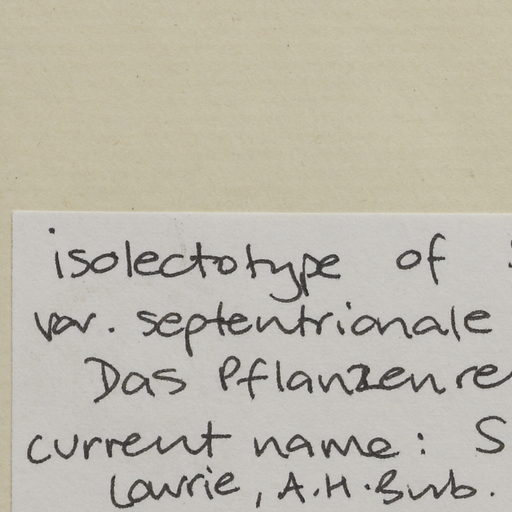 isolectotype of S
var. septentrionale
Das Pflanzenre
current name: S
Lowrie, A.H.Burb.